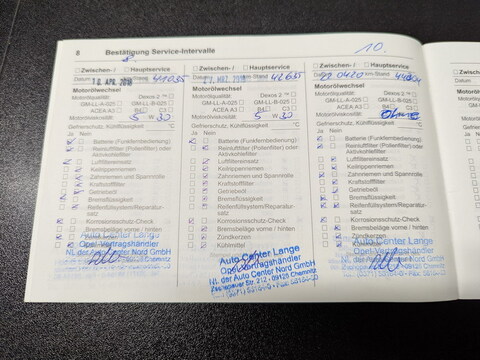 8 Bestätigung Service-Intervalle
10.
Zwischen- / Hauptservice
Datum: 18. APR. 2018 41035
Motorölwechsel
Motorölqualität: Dexos 2 ™
GM-LL-A-025 GM-LL-B-025
ACEA A3 C3
Motorölviskosität: 5 W 30
Gefrierschutz, Kühlflüssigkeit: °C
Ja Nein
Batterie (Funkfernbedienung):
Reinluftfilter (Pollenfilter) oder
Aktivkohlefilter
Luftfiltereinsatz
Keilrippenriemen
Zahnriemen und Spannrolle
Kraftstofffilter
Getriebeöl
Bremsflüssigkeit
Reifenfüllsystem/Reparatur-
satz
Korrosionsschutz-Check
Bremsbeläge vorne / hinten
Zündkerzen
Auto Center Lange
Opel-Vertragshändler
NL der Auto Center Nord GmbH
Zwischen- / Hauptservice
2018 km-Stand 42635
Motorölwechsel
Motorölqualität: Dexos 2 ™
GM-LL-A-025 GM-LL-B-025
ACEA A3 C3
Motorölviskosität: 5 W 30
Gefrierschutz, Kühlflüssigkeit: °C
Ja Nein
Batterie (Funkfernbedienung):
Reinluftfilter (Pollenfilter) oder
Aktivkohlefilter
Luftfiltereinsatz
Keilrippenriemen
Zahnriemen und Spannrolle
Kraftstofffilter
Getriebeöl
Bremsflüssigkeit
Reifenfüllsystem/Reparatur-
satz
Korrosionsschutz-Check
Bremsbeläge vorne / hinten
Zündkerzen
Kühlmittel
Auto Center Lange
Opel-Vertragshändler
NL der Auto Center Nord GmbH
212 · 09125 Chemnitz
Zwischen- / Hauptservice
0420 km-Stand
Motorölwechsel
Motorölqualität: Dexos 2 ™
GM-LL-A-025 GM-LL-B-025
ACEA A3 C3
Motorölviskosität:
Gefrierschutz, Kühlflüssigkeit: °C
Ja Nein
Batterie (Funkfernbedienung):
Reinluftfilter (Pollenfilter) oder
Aktivkohlefilter
Luftfiltereinsatz
Keilrippenriemen
Zahnriemen und Spannrolle
Kraftstofffilter
Getriebeöl
Bremsflüssigkeit
Reifenfüllsystem/Reparatur-
satz
Korrosionsschutz-Check
Bremsbeläge vorne / hinten
Zündkerzen
Auto Center Lange
Opel-Vertragshändler
NL der Auto Center Nord GmbH